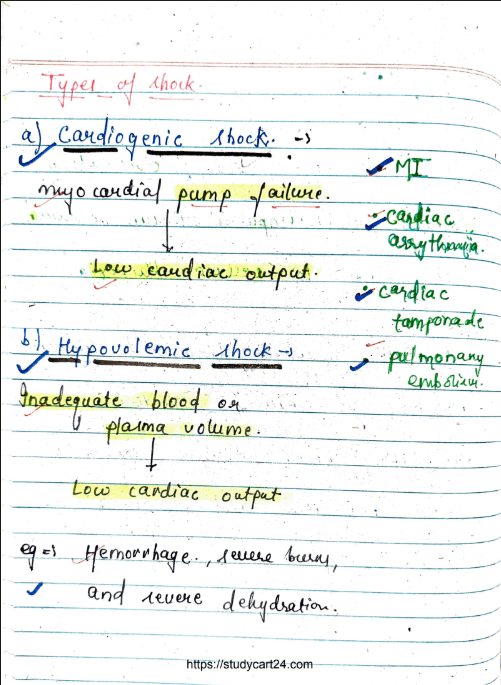 Types of shock.
a) Cardiogenic shock. →
myocardial pump failure.
↓
Low cardiac output.
• MI
• cardiac
arrythmia.
• cardiac
tamponade
• pulmonary
embolism.
b) Hypovolemic shock →
Inadequate blood or
plasma volume.
↓
Low cardiac output
eg ⇒ Hemorrhage, severe burns,
and severe dehydration.
https://studycart24.com